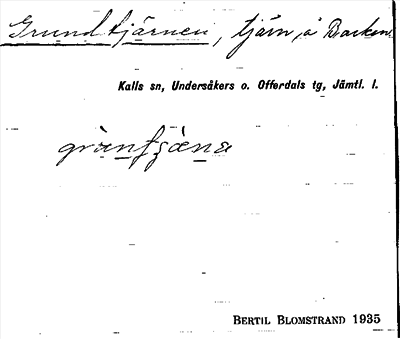 Grundtjärnen, tjärn, å Backen.
Kalls sn, Undersåkers o. Offerdals tg, Jämtl. l.
BERTIL BLOMSTRAND 1935